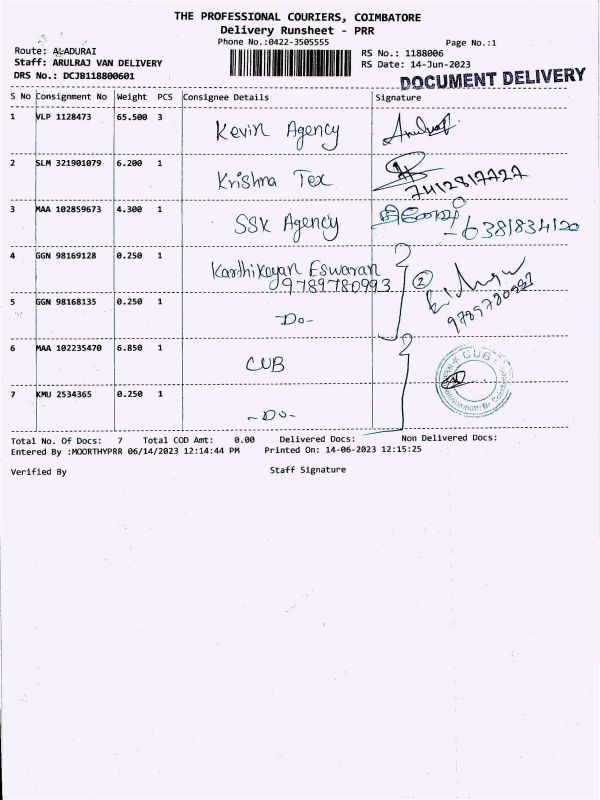 THE PROFESSIONAL COURIERS, COIMBATORE
Delivery Runsheet - PRR
Phone No.:0422-3505555
Page No.:1
Route: ALADURAI
RS No.: 1188006
Staff: ARULRAJ VAN DELIVERY
RS Date: 14-Jun-2023
DRS No.: DCJB118800601
DOCUMENT DELIVERY
S No Consignment No Weight PCS Consignee Details Signature
1 VLP 1128473 65.500 3 Kevin Agency
2 SLM 321901079 6.200 1 Krishna Tex 7412817727
3 MAA 102859673 4.300 1 SSK Agency - 6381834120
4 GGN 98169128 0.250 1 Karthikayan Eswaran
9789780993 2
5 GGN 98168135 0.250 1 - Do - 9789780993
6 MAA 102235470 6.850 1 CUB CUB
7 KMU 2534365 0.250 1 - Do -
Total No. Of Docs: 7 Total COD Amt: 0.00 Delivered Docs: Non Delivered Docs:
Entered By :MOORTHYPRR 06/14/2023 12:14:44 PM Printed On: 14-06-2023 12:15:25
Verified By Staff Signature